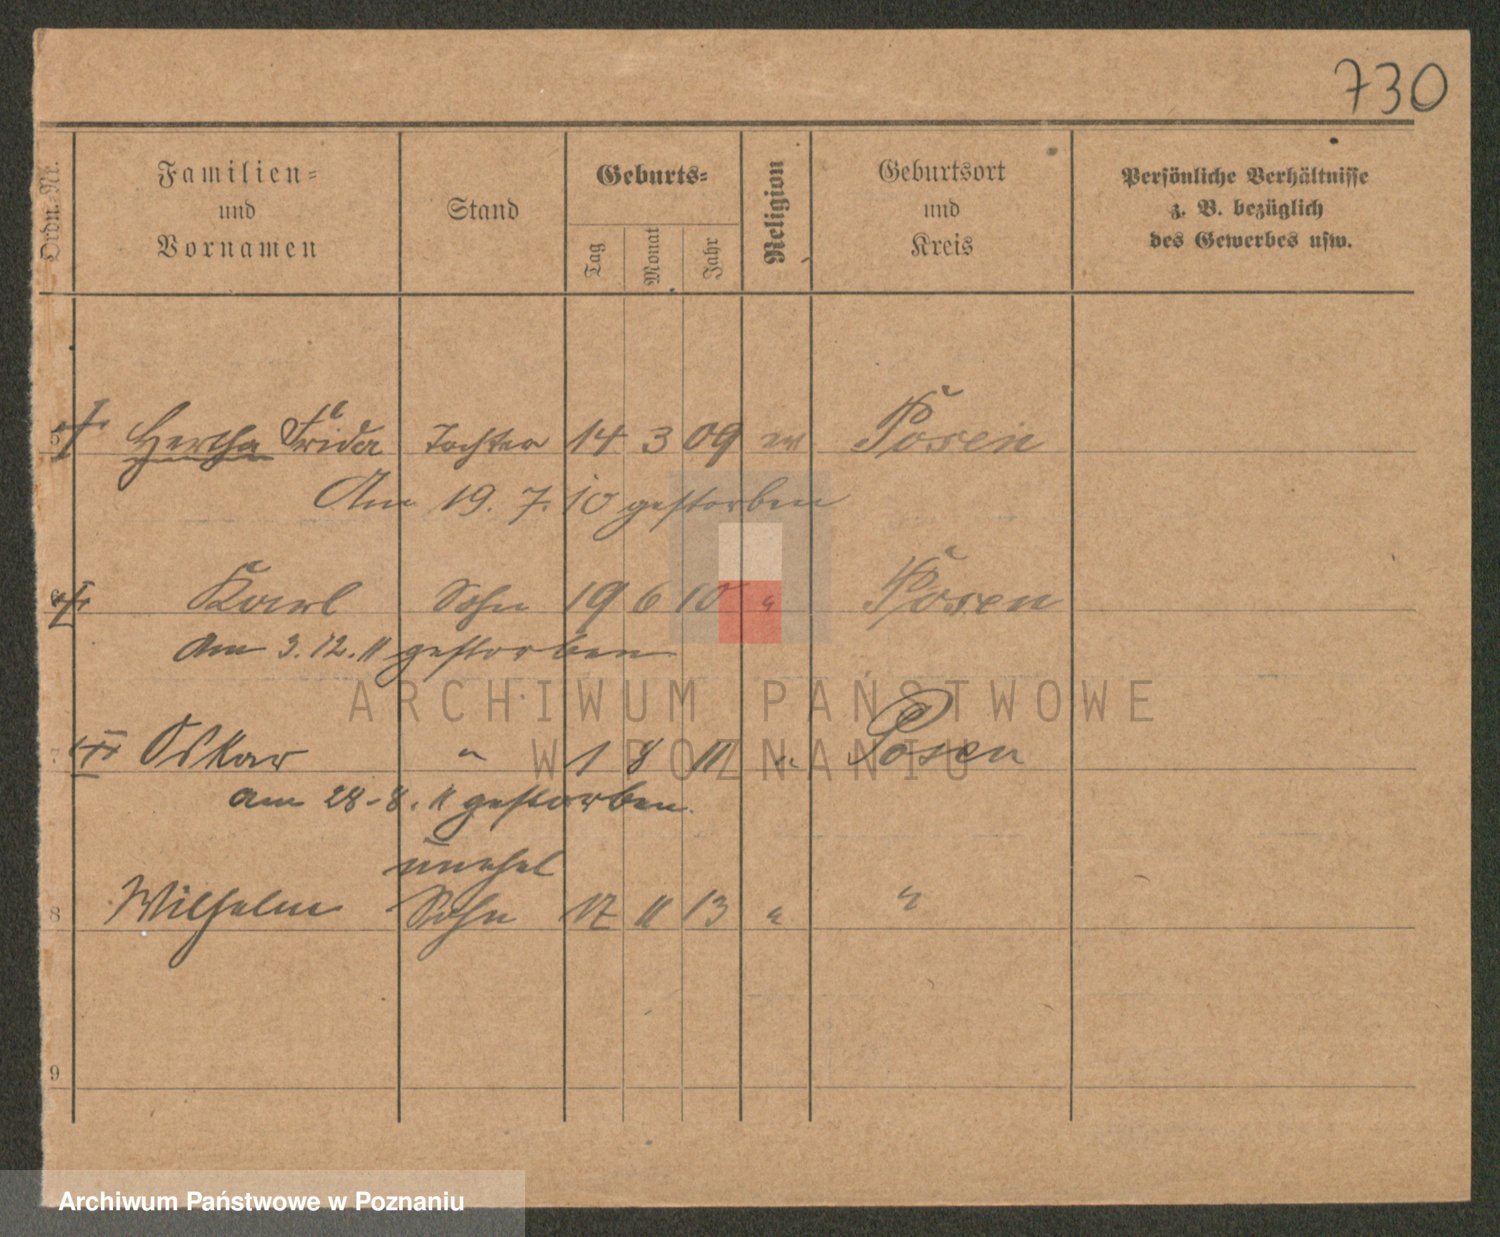 730
Ordn.-Nr.
Familien-
und
Vornamen
Stand
Geburts-
Tag
Monat
Jahr
Religion
Geburtsort
und
Kreis
Persönliche Verhältnisse
z. B. bezüglich
des Gewerbes usw.
Hertha Frida Tochter 14 3 09 ev Posen
Am 19. 7. 10 gestorben
Karl Sohn 19 6 10 " Posen
Am 3. 12. 11 gestorben
7 Oskar " 1 8 11 " Posen
am 28-8. 11 gestorben.
unehel
8 Wilhelm Sohn 17 11 13 " "
9
ARCHIWUM PAŃSTWOWE
W POZNANIU
Archiwum Państwowe w Poznaniu